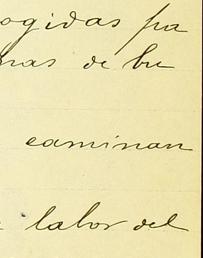 ogidas pa
nas de bu
caminan
labor del